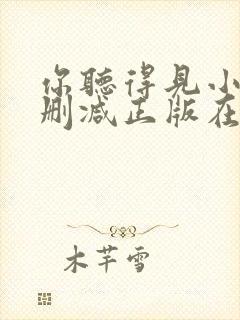 你聽得見小
刪减正版在
木芊雪